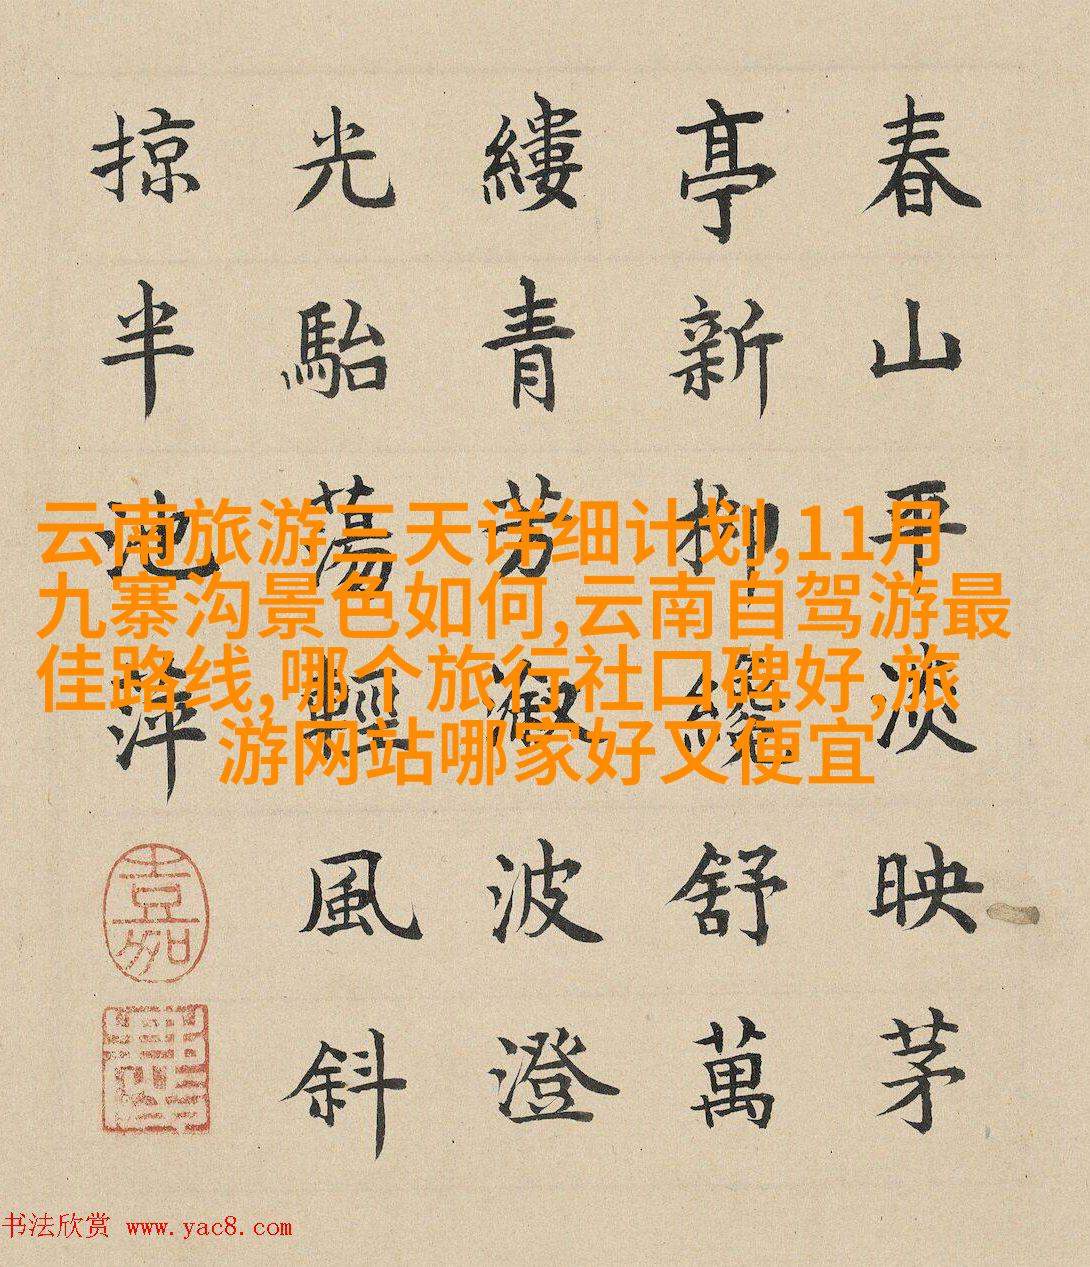 春山平淡映茅
亭新柳纔舒萬
縷青芳漵波澄
光駘蕩輕風斜
掠半池萍
嘉
云南旅游三天详细计划,11月
九寨沟景色如何,云南自驾游最
佳路线,哪个旅行社口碑好,旅
游网站哪家好又便宜
书法欣赏 www.yac8.com